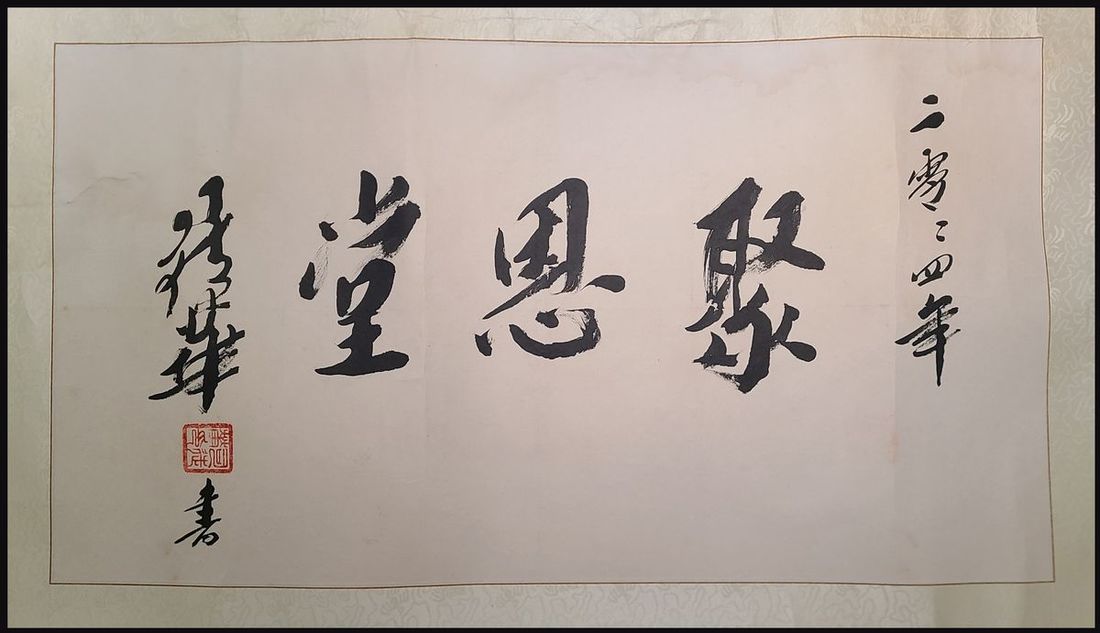 二零〻四年
聚恩堂
華
書